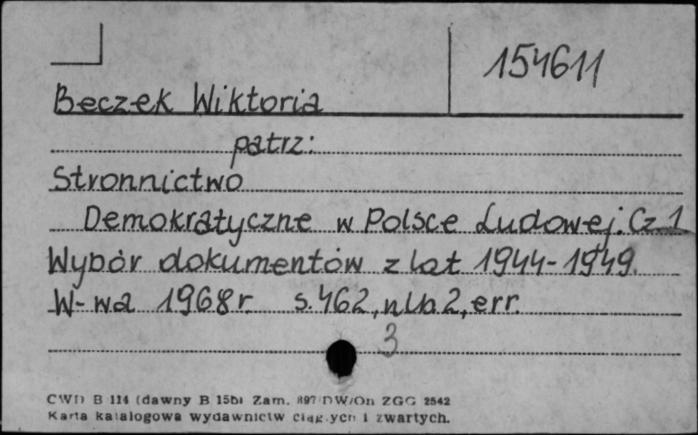 154611
Beczek Wiktoria
patrz:
Stronnictwo
Demokratyczne w Polsce Ludowej. Cz 1
Wybór dokumentów z lat 1944-1949.
W-wa 1968r. s. 462, nlb 2, err.
3
CWD B 114 (dawny B 15b) Zam. 897/DW/On ZGG 2542
Karta katalogowa wydawnictw ciągłych i zwartych.